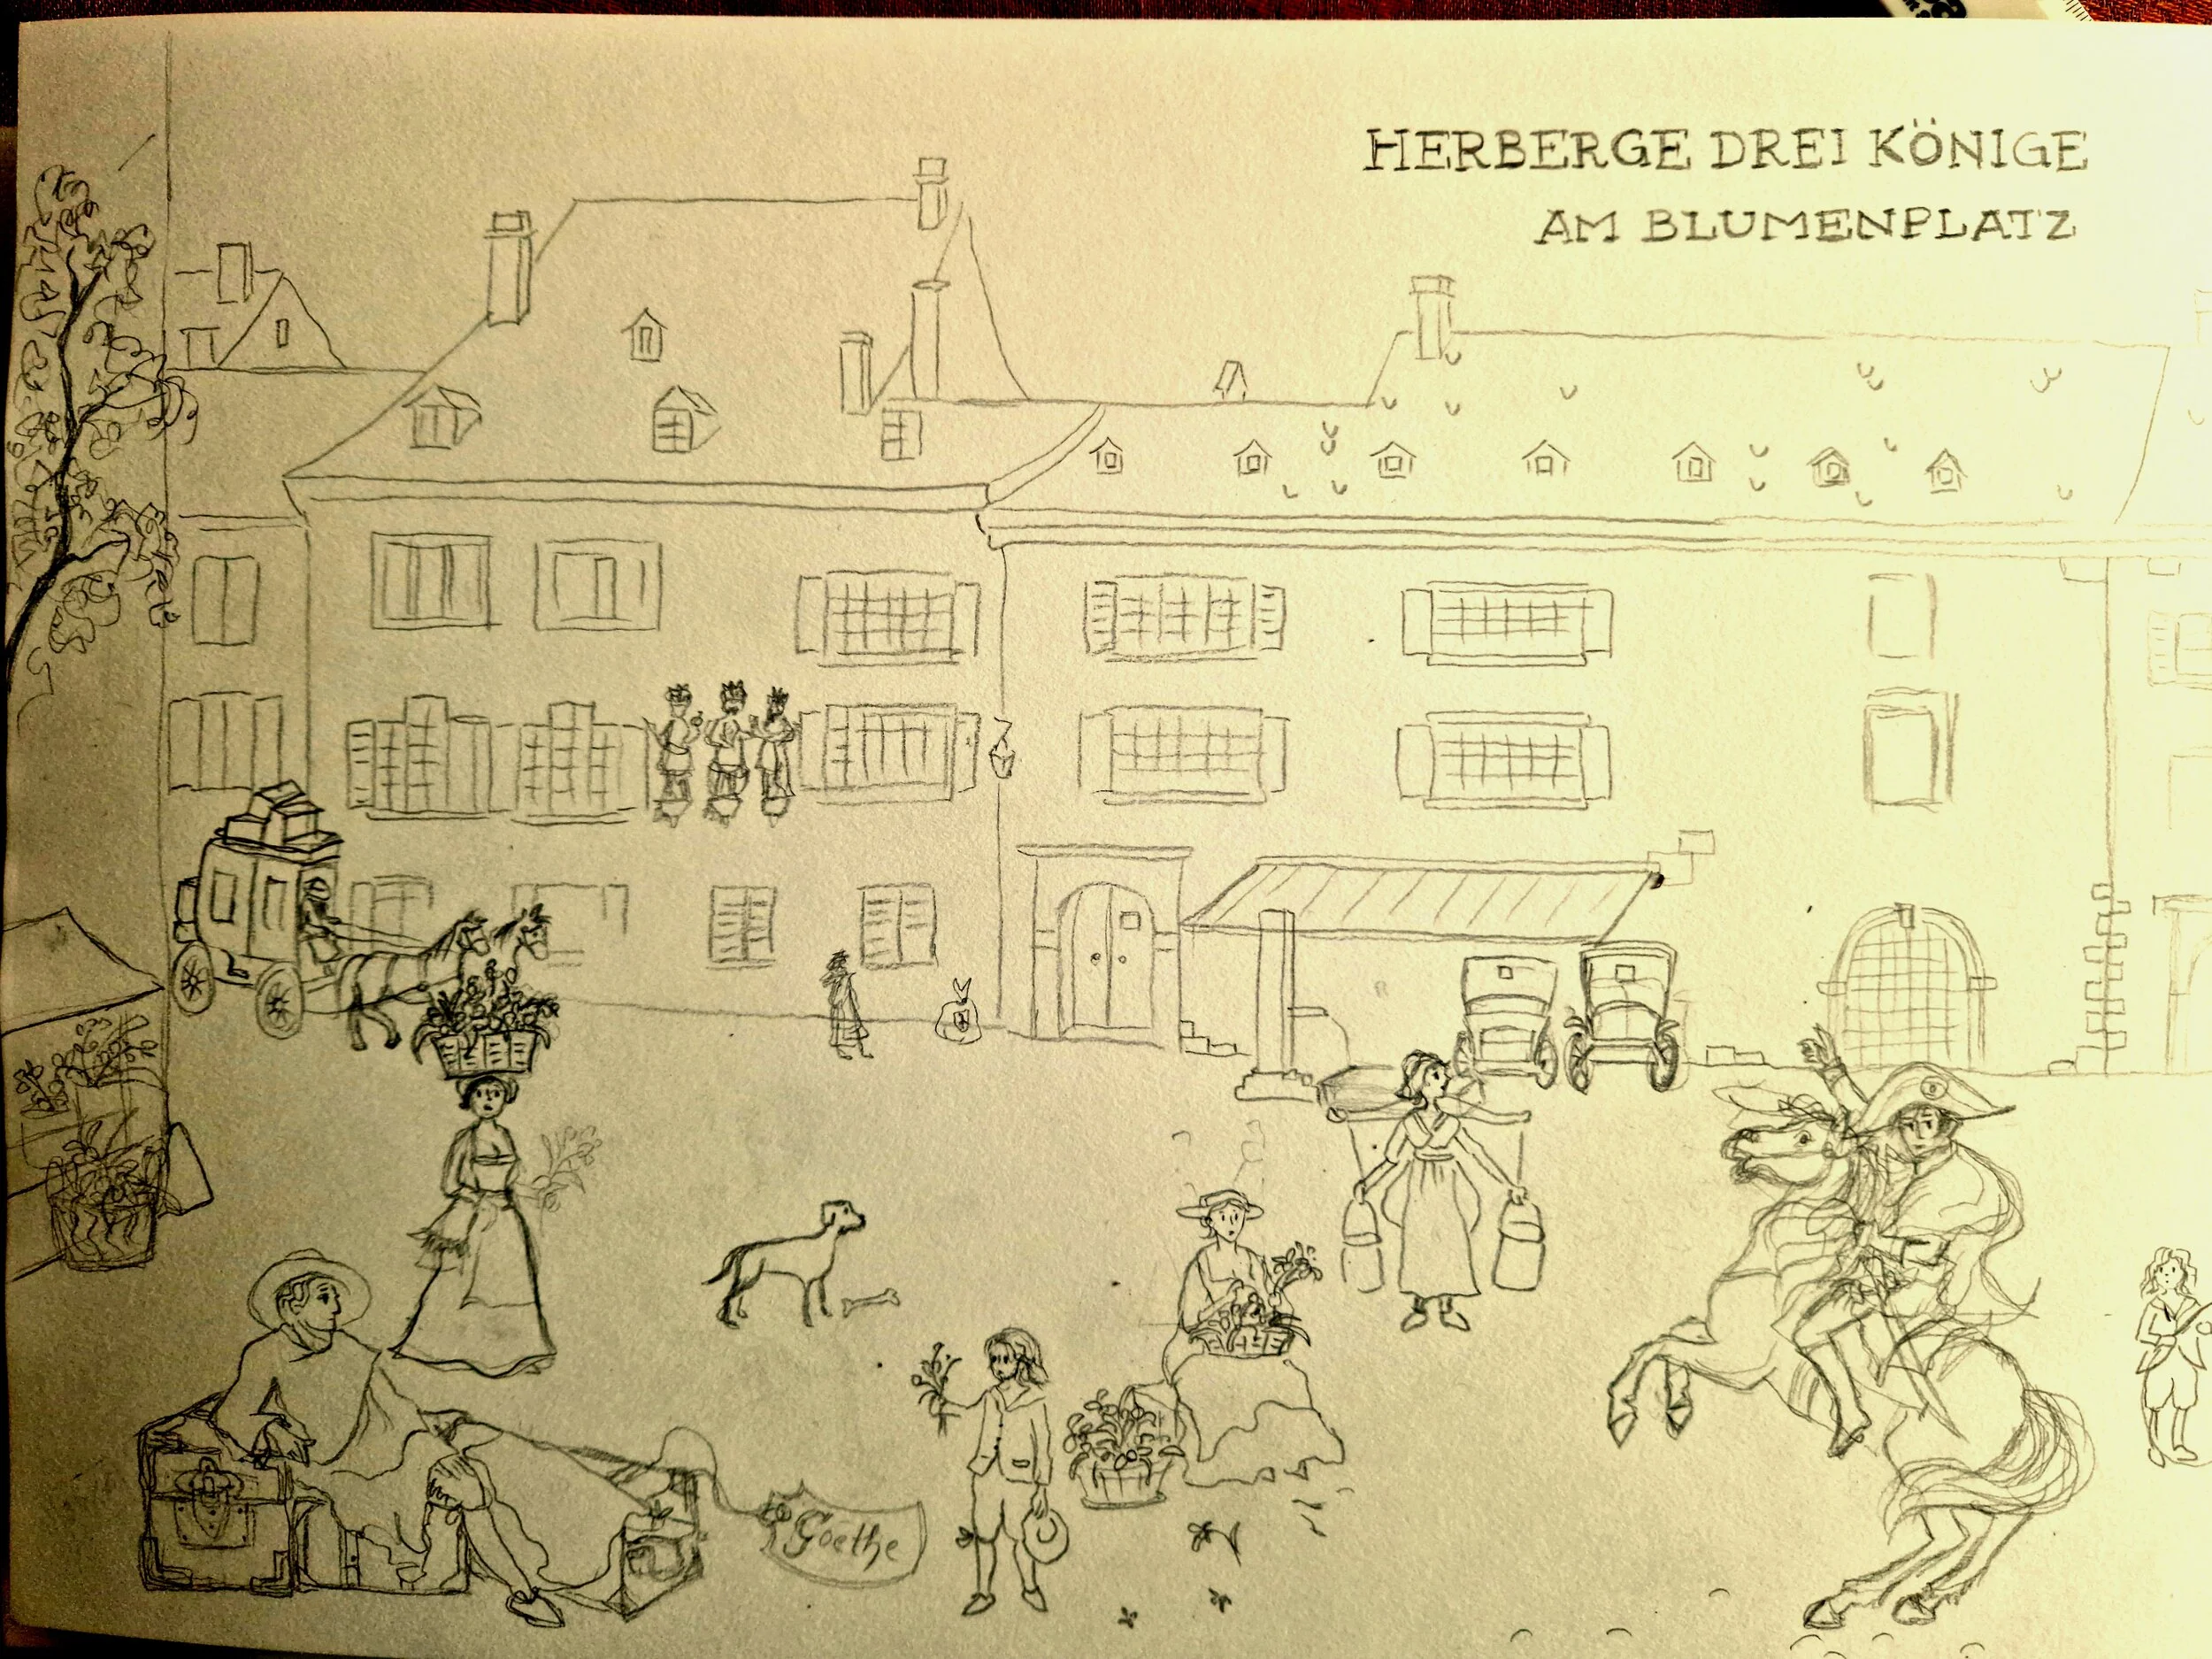 HERBERGE DREI KÖNIGE
AM BLUMENPLATZ
Goethe